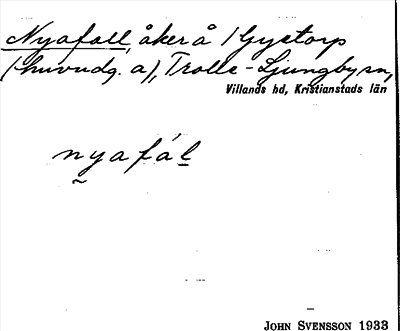 Nyafall, åker å 1 Gyetorp
(huvudg. a), Trolle-Ljungby sn,
Villands hd, Kristianstads län
nyafál
JOHN SVENSSON 1933